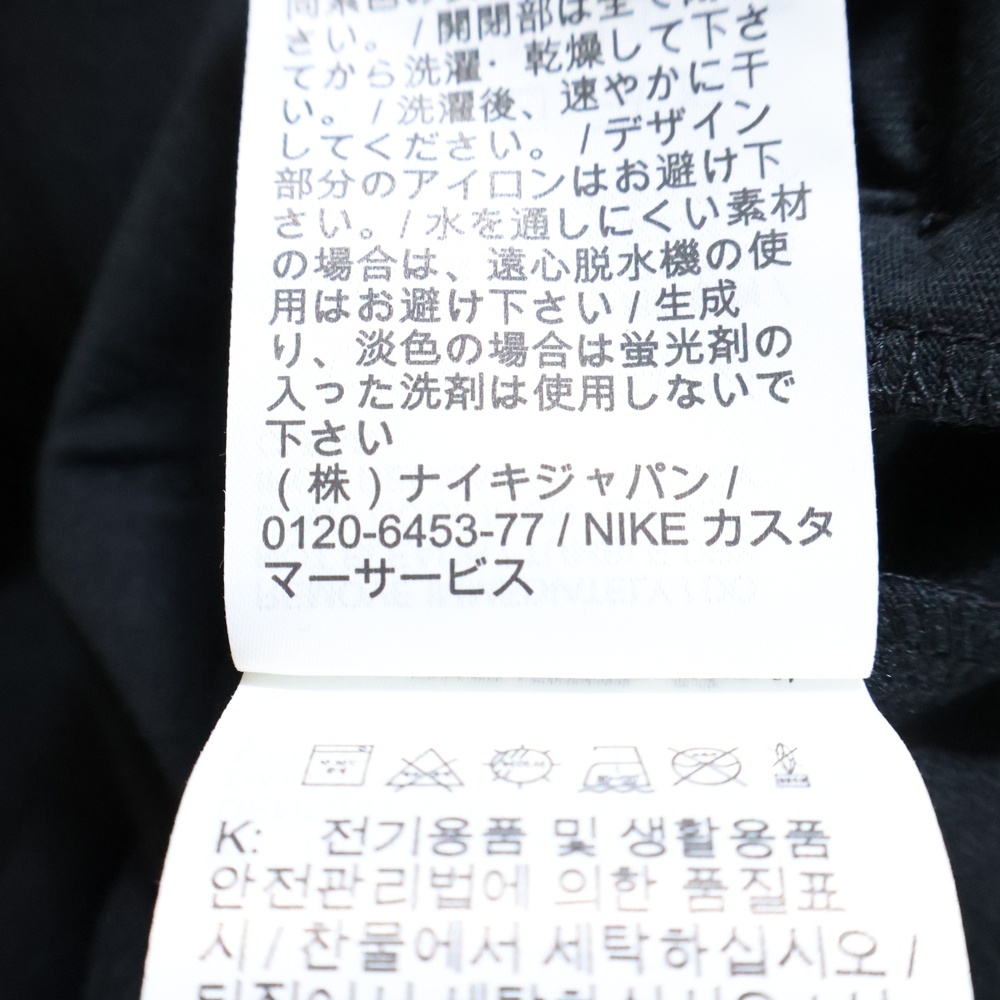 さい。 / 開閉部は全て
てから洗濯・乾燥して下さ
い。 / 洗濯後、速やかに干
してください。 / デザイン
部分のアイロンはお避け下
さい。/ 水を通しにくい素材
の場合は、遠心脱水機の使
用はお避け下さい / 生成
り、淡色の場合は蛍光剤の
入った洗剤は使用しないで
下さい
(株) ナイキジャパン /
0120-6453-77 / NIKE カスタ
マーサービス
K: 전기용품 및 생활용품
안전관리법에 의한 품질표
시 / 찬물에서 세탁하십시오 /